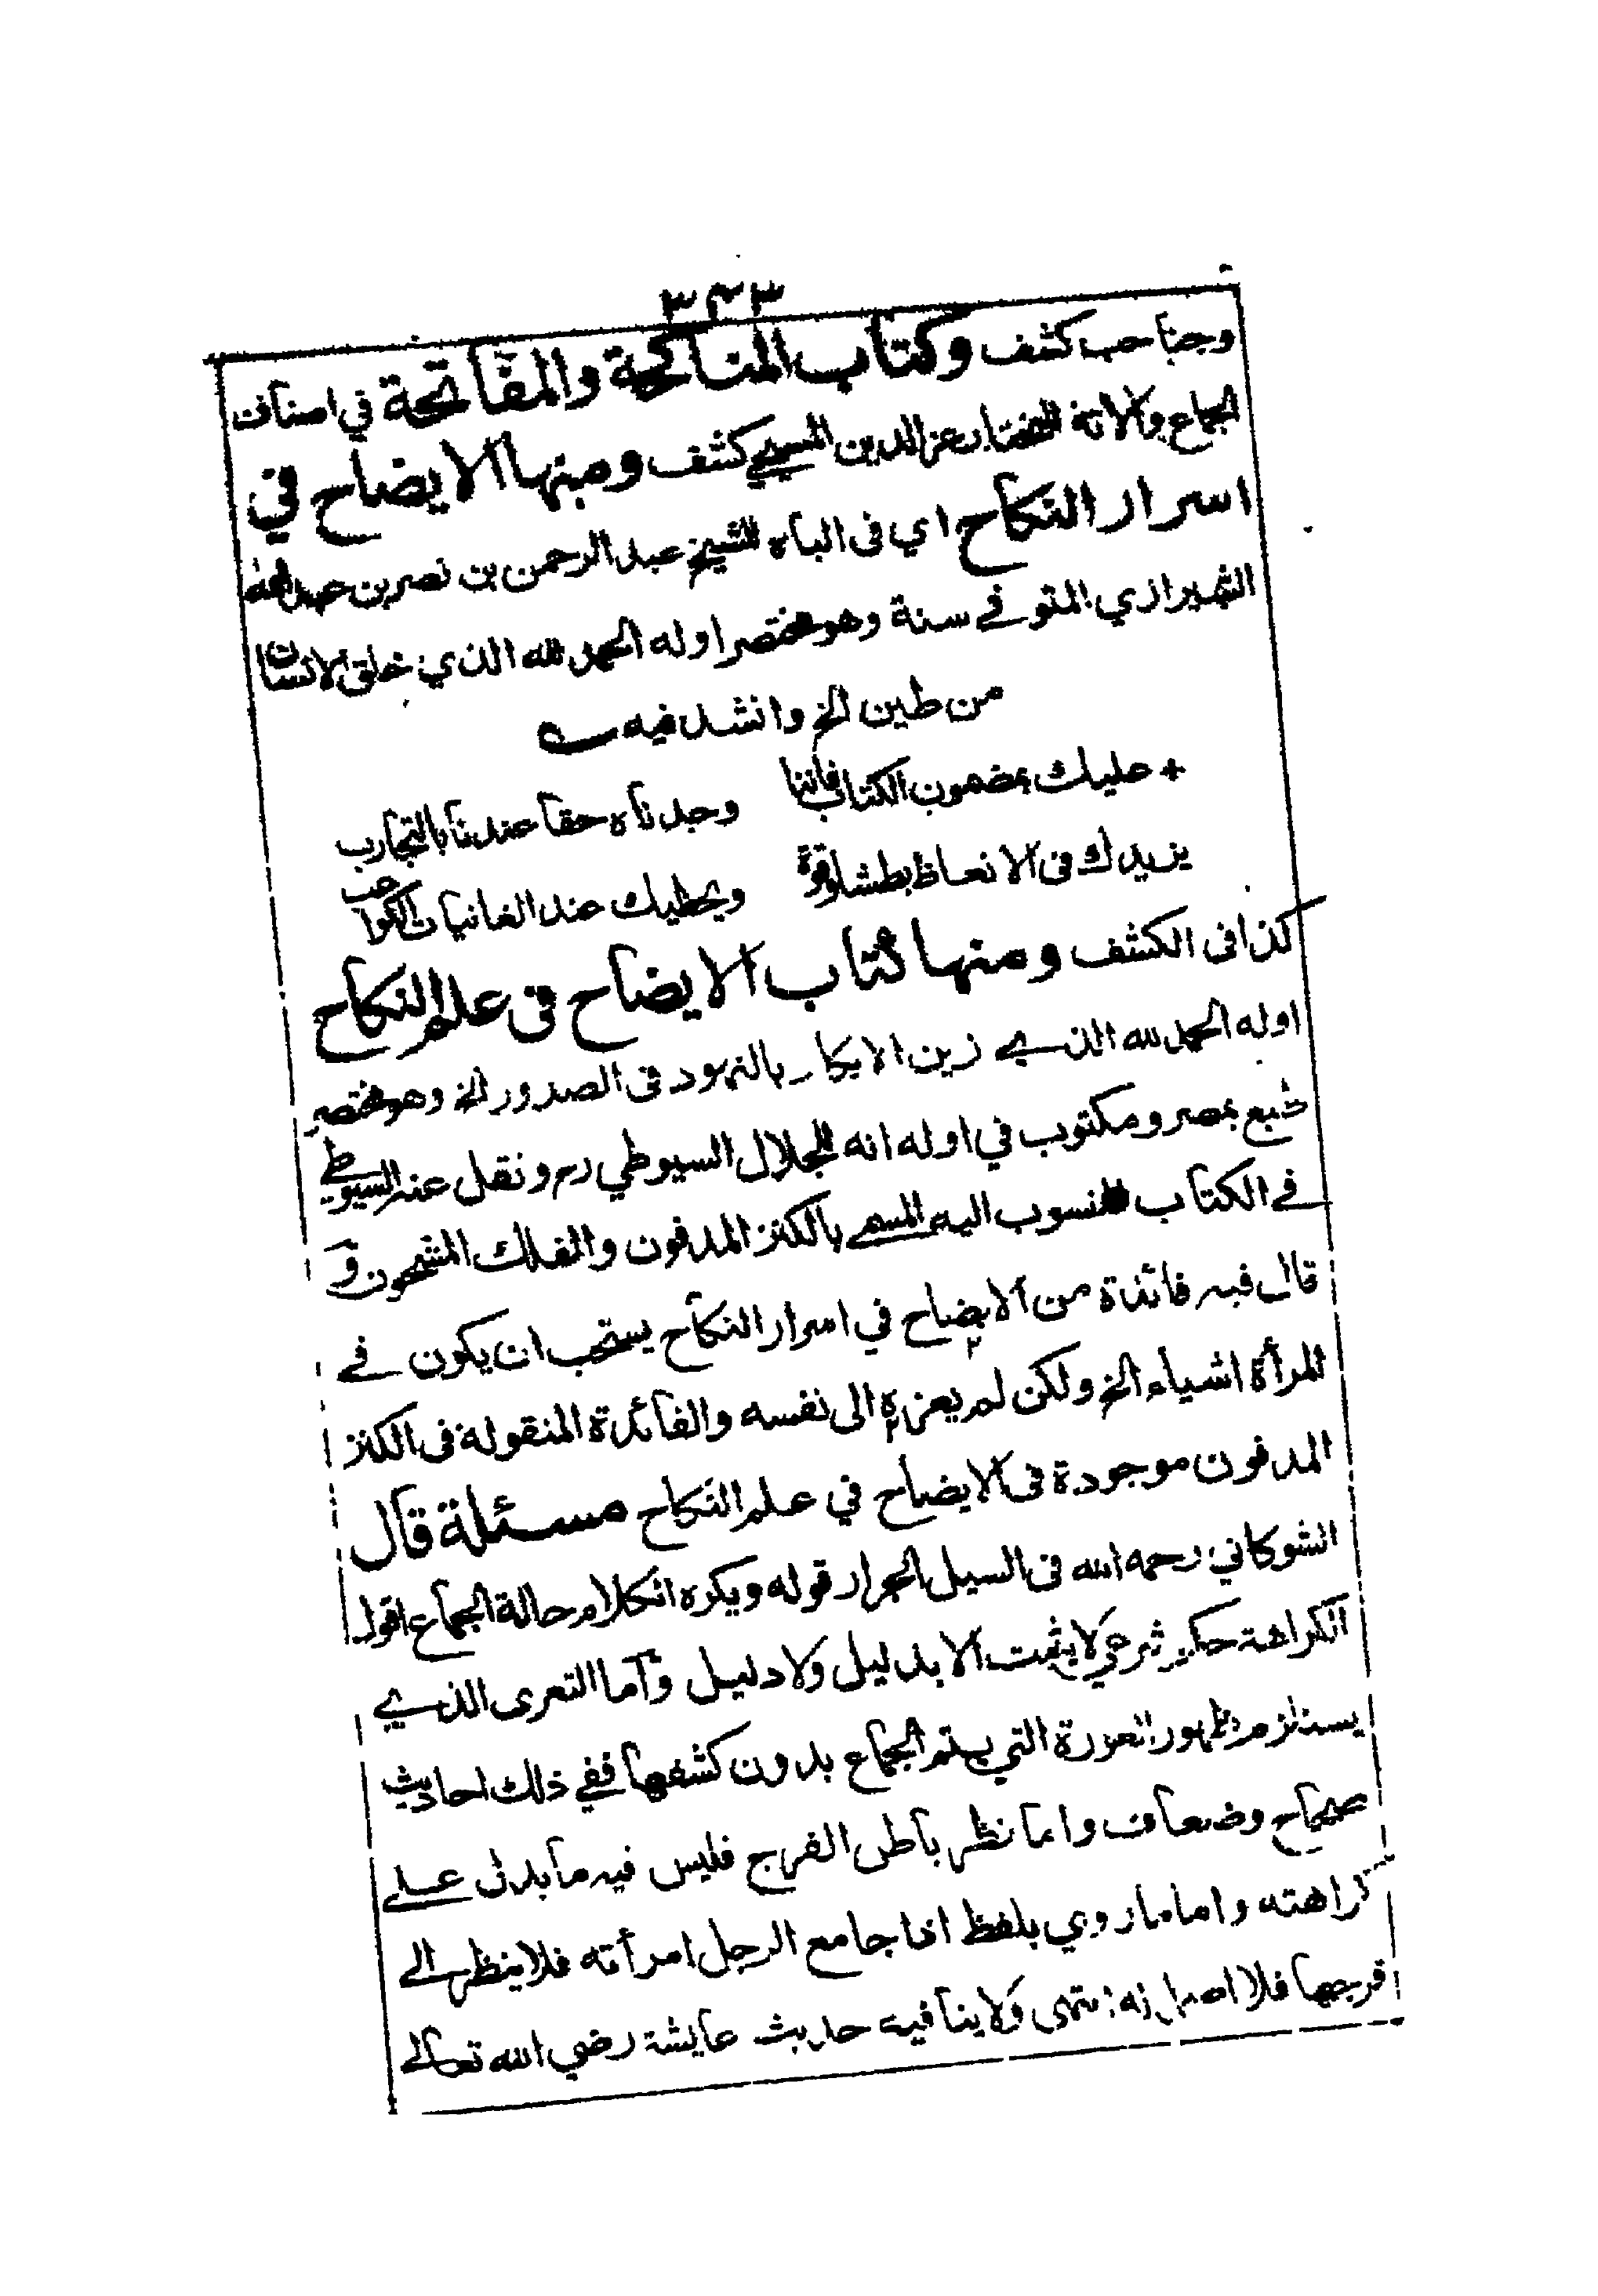 ٣٣٣
كشف وكتاب المناكحة والمفاتحة في اصناف
الجماع والاته للمختار عز الدين المسبحي كشف ومنها الايضاح في
اسرار النكاح اي في الباه للشيخ عبد الرحمن بن نصر بن عبد الله
الشيرازي المتوفے سنة وهو مختصر اوله الحمد لله الذي خلق الانسان
من طين الخ وانشد فيه
عليك بمضمون الكتاب فاننا وجدناه حقا عندنا بالتجارب
يزيدك فى الانعاظ بطشا وقوة ويحظيك عند الغانيات الكواعب
كذا فى الكشف ومنها كتاب الايضاح فى علم النكاح
اوله الحمد لله الذے زين الابكار بالنهود فى الصدور الخ وهو مختصر
طبع بمصر ومكتوب في اوله انه للجلال السيوطي رح ونقل عنه السيوطے
فے الكتاب المنسوب اليه المسمے بالكنز المدفون والفلك المشحون و
قال فيه فائدة من الايضاح في اسرار النكاح يستحب ان يكون فے
المرأة اشياء الخ ولكن لم يعزه الى نفسه والفائدة المنقولة فى الكنز
المدفون موجودة فى الايضاح في علم النكاح مسئلة قال
الشوكاني رحمه الله فى السيل الجرار قوله ويكره الكلام حالة الجماع اقول
الكراهة حكم شرعي لا يثبت الا بدليل ولا دليل واما التعرى الذي
يستلزم ظهور العورة التي يتم الجماع بدون كشفها ففي ذلك احاديث
صحاح وضعاف واما نظر باطن الفرج فليس فيه ما يدل علے
كراهته واما ما روي بلفظ اذا جامع الرجل امرأته فلا ينظر الے
فرجها فلا اصل له انتهى ولا ينافيه حديث عايشة رضي الله تعالے